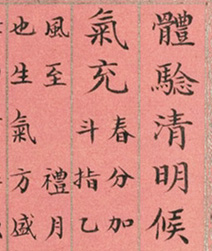 體騐清明候
氣充
春分加
斗指乙
風至 禮月
也生氣方盛